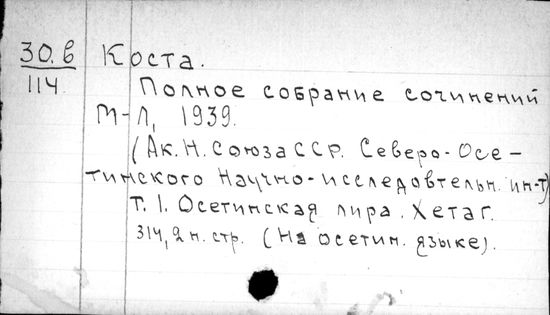 30.в Коста.
114
Полное собрание сочинений
М-Л, 1939.
(Ак. Н. Союза ССР. Северо-Осе-
тинского Научно-исследовтельн. ин-т)
Т. 1. Осетинская лира. Хетаг.
314, 2 н. стр. (На осетин. языке).